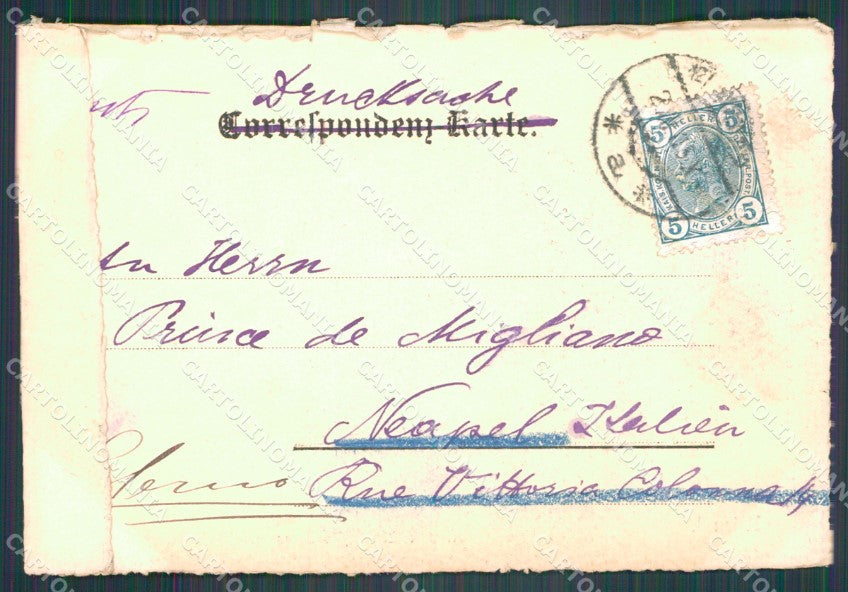 Drucksache
Correspondenz-Karte.
5 HELLER 5
5 HELLER 5
An Herrn
Prince de Migliano
Neapel Italien
Rue Vittoria Colonna 14
CARTOLINOMANIA